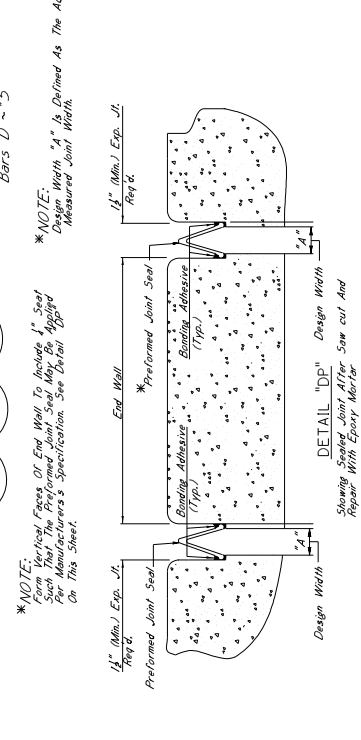 Bars D ~ #5
*NOTE:
Form Vertical Faces Of End Wall To Include 1" Seat
Such That The Preformed Joint Seal May Be Applied
Per Manufacturer's Specification. See Detail "DP"
On This Sheet.
*NOTE:
Design Width "A" Is Defined As The
Measured Joint Width.
1½" (Min.) Exp. Jt.
Req'd.
End Wall
1½" (Min.) Exp. Jt.
Req'd.
Preformed Joint Seal
*Preformed Joint Seal
Bonding Adhesive
(Typ.)
Bonding Adhesive
(Typ.)
"A"
"A"
Design Width
Design Width
DETAIL "DP"
Showing Sealed Joint After Saw cut And
Repair With Epoxy Mortar